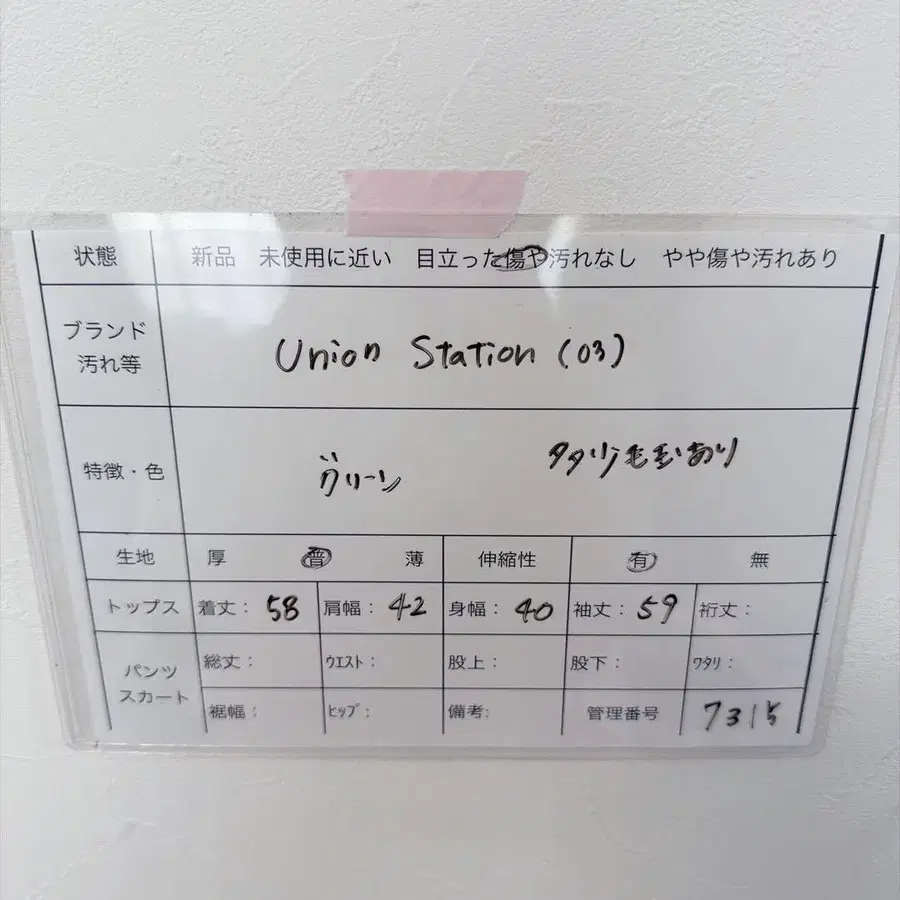 状態 新品 未使用に近い 目立った傷や汚れなし やや傷や汚れあり
ブランド
汚れ等 Union Station (03)
特徴・色 グリーン あり
生地 厚 普 薄 伸縮性 有 無
トップス 着丈: 58 肩幅: 42 身幅: 40 袖丈: 59 裄丈:
パンツ
スカート
総丈: ウエスト: 股上: 股下: ワタリ:
裾幅: ヒップ: 備考: 管理番号 7315